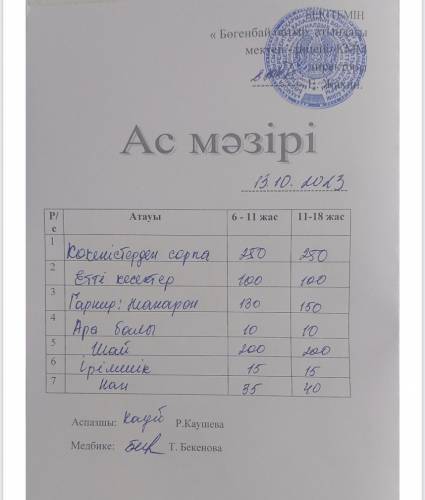 БЕКІТЕМІН
« Бөгенбай атындағы
мектеп - лицейі КММ
директоры
Ас мәзірі
13.10. 2023
Р/с Атауы 6 - 11 жас 11-18 жас
1 Көкөністерден сорпа 250 250
2 Етті кесектер 100 100
3 Гарнир: макарон 130 150
4 Ара балы 10 10
5 Шай 200 200
6 ірімшік 15 15
7 нан 35 40
Аспазшы: Р.Каушева
Медбике: Т. Бекенова